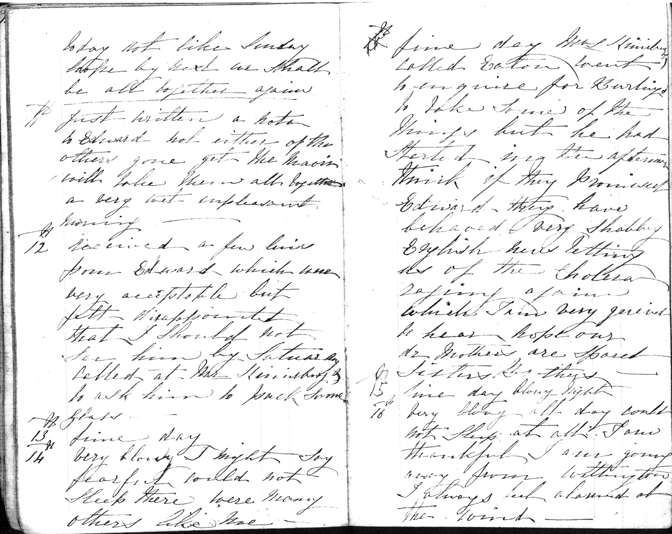 today not like Sunday
hope by next we shall
be all together again
11 Just written a note
to Edward not either of the
others gone yet the
will take them all together
a very wet unpleasant
morning
12 received a few lines
from Edward which were
very acceptable but
felt disappointed
that I should not
see him by Saturday
called at Mr
to ask him to pack some
glass
13 fine day
14 very blowy I might say
fearful could not
sleep there were many
others like me
fine day Mrs
called Eaton went
to enquire for
to take some of the
things but he had
started in the afternoon
think if they promised
Edward they have
behaved very shabby
English news telling
us of the Cholera
raging again
which I am very grieved
to hear hope our
dr Mothers are spared
Sisters
15 fine day blowy night
16 very blowy all day could
not sleep at all I am
thankful I am going
away from
I always is alarmed at
the wind